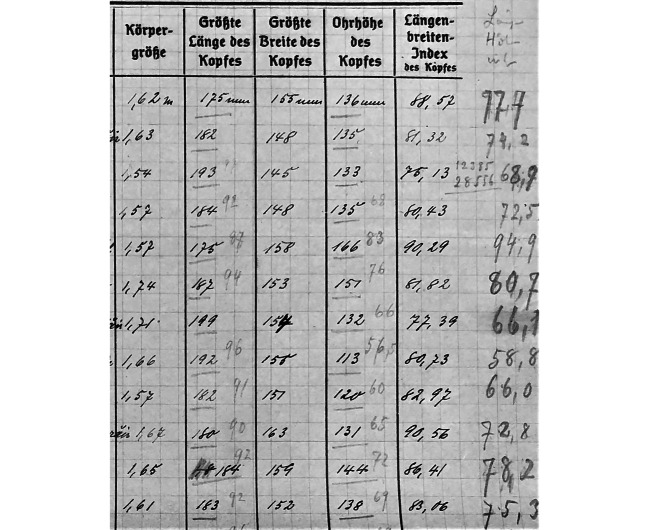 Körper-größe Größte Länge des Kopfes Größte Breite des Kopfes Ohrhöhe des Kopfes Längen-breiten-Index des Kopfes
1,62 m 175 mm 155 mm 136 mm 88,57 77,7
1,63 182 148 135 81,32 74,2
1,54 193 145 133 75,13 12385 28556 68,9
1,57 184 92 148 135 68 80,43 72,5
1,57 175 87 158 166 83 90,29 94,9
1,74 187 94 153 151 76 81,82 80,7
1,71 199 154 132 66 77,39 66,1
1,66 192 96 155 113 56,5 80,73 58,8
1,57 182 91 151 120 60 82,97 66,0
1,67 180 90 163 131 65 90,56 72,8
1,65 184 92 159 144 72 86,41 78,2
1,61 183 92 152 138 69 83,06 75,3